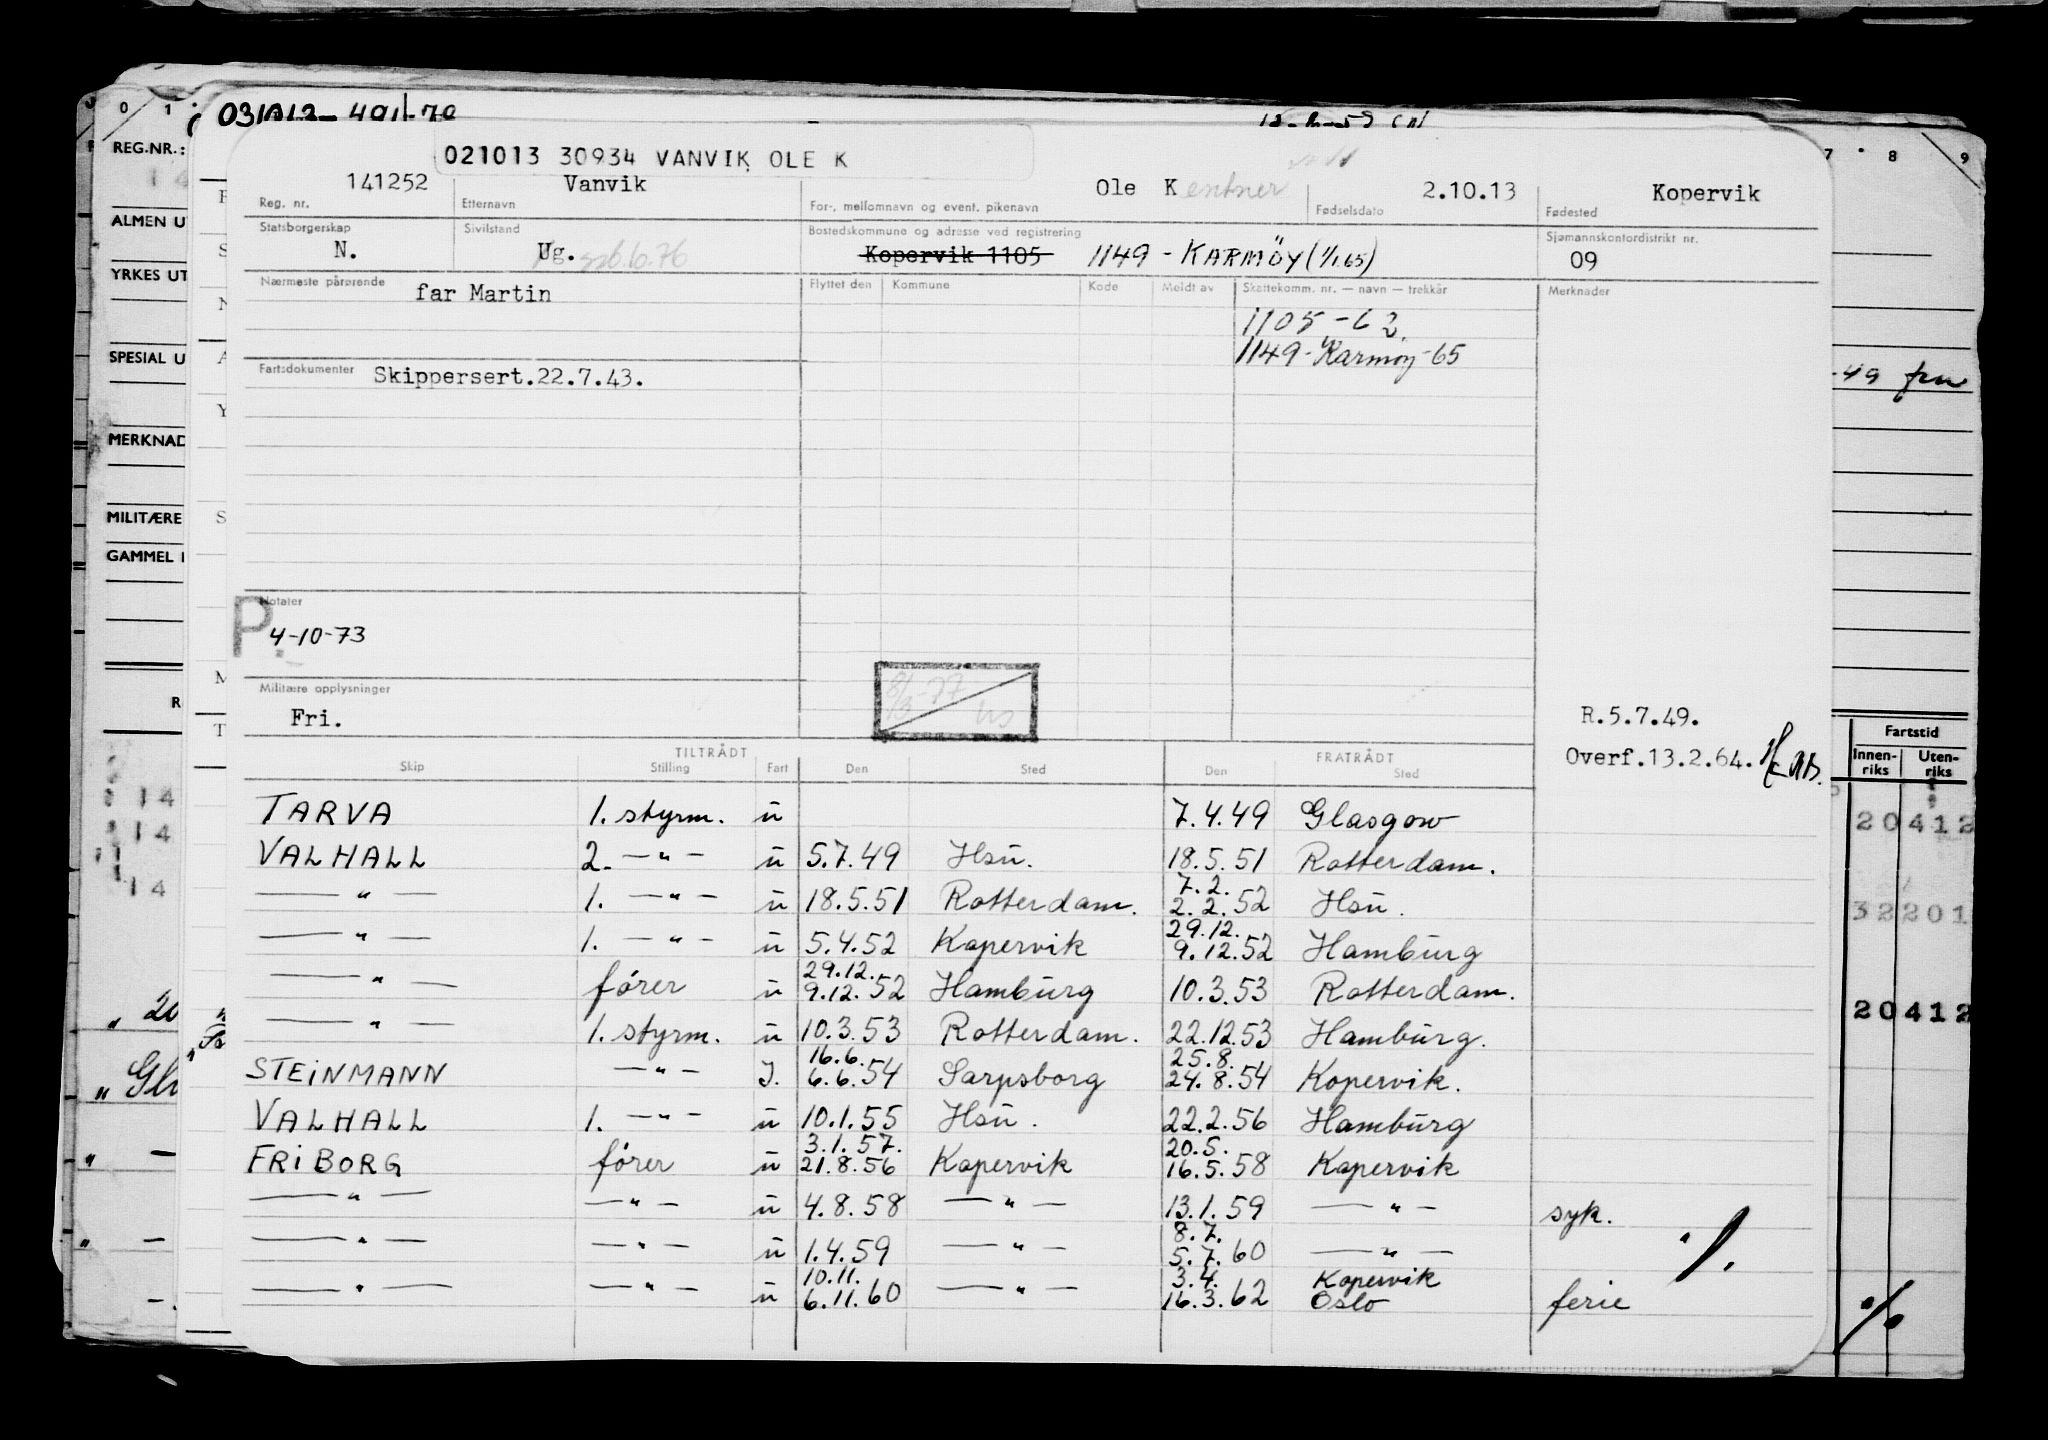 0 1
7 8 9
REG.NR.:
ALMEN U
YRKES UT
SPESIAL U
MERKNAD
MILITÆRE
GAMMEL
021013 30934 VANVIK OLE K
141252 Vanvik Ole Kentner 2.10.13 Kopervik
Reg. nr. Etternavn For-, mellomnavn og event. pikenavn Fødselsdato Fødested
Statsborgerskap Sivilstand Bostedskommune og adresse ved registrering Sjømannskontordistrikt nr.
N. Ug. Kopervik 1105 1149 - KARMÖY (1/1.65) 09
Nærmeste pårørende far Martin Flyttet den Kommune Kode Meldt av Skattekomm. nr. — navn — trekkår Merknader
1105 - 62
1149 - Karmøy - 65
-49
Fartsdokumenter Skippersert.22.7.43.
Notater
P. 4-10-73
Militære opplysninger
Fri.
8/3-77
R.5.7.49.
Overf.13.2.64.
Fartstid
Innen-riks Uten-riks
TILTRÅDT FRATRÅDT
Skip Stilling Fart Den Sted Den Sted
TARVA 1. styrm. u 7.4.49 Glasgow
VALHALL 2. — " — u 5.7.49 Hsu. 18.5.51 Rotterdam.
7.2.
— " — 1. — " — u 18.5.51 Rotterdam. 2.2.52 Hsu.
29.12.
— " — 1. — " — u 5.4.52 Kopervik 9.12.52 Hamburg
29.12.
— " — fører u 9.12.52 Hamburg 10.3.53 Rotterdam.
— " — 1. styrm. u 10.3.53 Rotterdam. 22.12.53 Hamburg.
16.6. 25.8.
STEINMANN — " — J. 6.6.54 Sarpsborg 24.8.54 Kopervik.
VALHALL 1. — " — u 10.1.55 Hsu. 22.2.56 Hamburg
3.1.57. 20.5.
FRIBORG fører u 21.8.56 Kopervik 16.5.58 Kopervik
— " — — " — u 4.8.58 — " — 13.1.59 — " — syk.
8.7.
— " — — " — u 1.4.59 — " — 5.7.60 — " —
10.11. 3.4. Kopervik
— " — — " — u 6.11.60 — " — 16.3.62 Oslo ferie
20412
32201
20412